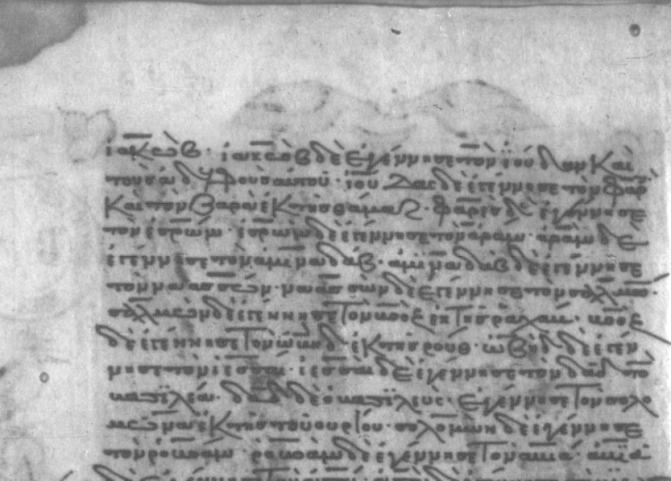 ἰακὼβ· ἰακὼβ δὲ ἐγέννησε τὸν ἰούδαν καὶ
τοὺς ἀδελφοὺς αὐτοῦ· ἰούδας δὲ ἐγέννησε τὸν φαρὲς
καὶ τὸν ζαρὰ ἐκ τῆς θάμαρ· φαρὲς δὲ ἐγέννησε
τὸν ἐσρώμ· ἐσρὼμ δὲ ἐγέννησε τὸν ἀράμ· ἀρὰμ δὲ
ἐγέννησε τὸν ἀμιναδάβ· ἀμιναδὰβ δὲ ἐγέννησε
τὸν ναασσών· ναασσὼν δὲ ἐγέννησε τὸν σαλμών·
σαλμὼν δὲ ἐγέννησε τὸν βοὸζ ἐκ τῆς ραχάβ· βοὸζ
δὲ ἐγέννησε τὸν ὠβὴδ ἐκ τῆς ρούθ· ὠβὴδ δὲ ἐγέν
νησε τὸν ἰεσσαί· ἰεσσαὶ δὲ ἐγέννησε τὸν δαδ τὸν
βασιλέα· δαδ δὲ ὁ βασιλεὺς ἐγέννησε τὸν σολο
μῶνα ἐκ τῆς τοῦ οὐρίου· σολομὼν δὲ ἐγέννησε
τὸν ροβοάμ· ροβοὰμ δὲ ἐγέννησε τὸν ἀβιά· ἀβιὰ